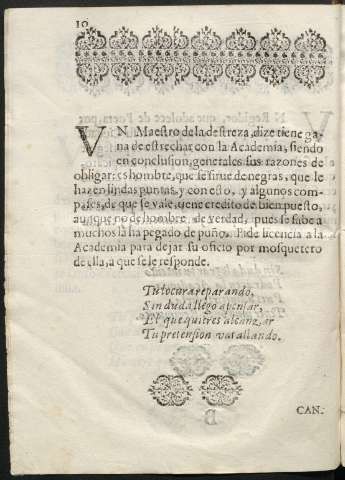 10
VN Maestro de la destreza, dize tiene ga-
na de estrechar con la Academia, siendo
en conclusion, generales sus razones de
obligar: es hombre, que se sirue de negras, que le
hazen lindas puntas, y con esto, y algunos com-
pases, de que se vale, tiene credito de bien puesto,
aunque no de hombre de verdad, pues se sabe a
muchos la ha pegado de puño. Pide licencia a la
Academia para dejar su oficio por mosquetero
de ella, a que se le responde.
Tu locura reparando,
Sin duda llegò a pensar,
El que quieres alcançar
Tu pretension vas allando.
D
CAN-